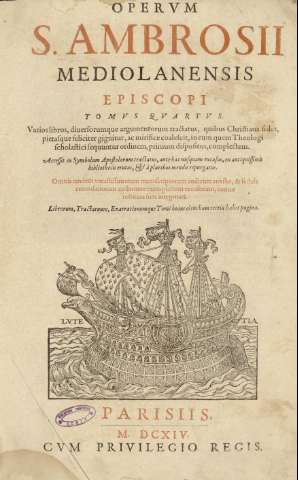 OPERVM
S. AMBROSII
MEDIOLANENSIS
EPISCOPI
TOMVS QVARTVS.
Varios libros, diversorumque argumentorum tractatus, quibus Christiana fides,
pietasque feliciter gignitur, ac mirifice coalescit, in eum quem Theologi
scholastici sequuntur ordinem, primum dispositos, complectens.
Accessit in Symbolum Apostolorum tractatus, ante hac nusquam excusus, ex antiquissimis
bibliothecis erutus, & à pluribus mendis repurgatus.
Omnia
Librorum, Tractatuum, Enarrationumque Tomi huius elenchum versa habet pagina.
LVTE TIA
PARISIIS.
M. DCXIV.
CVM PRIVILEGIO REGIS.